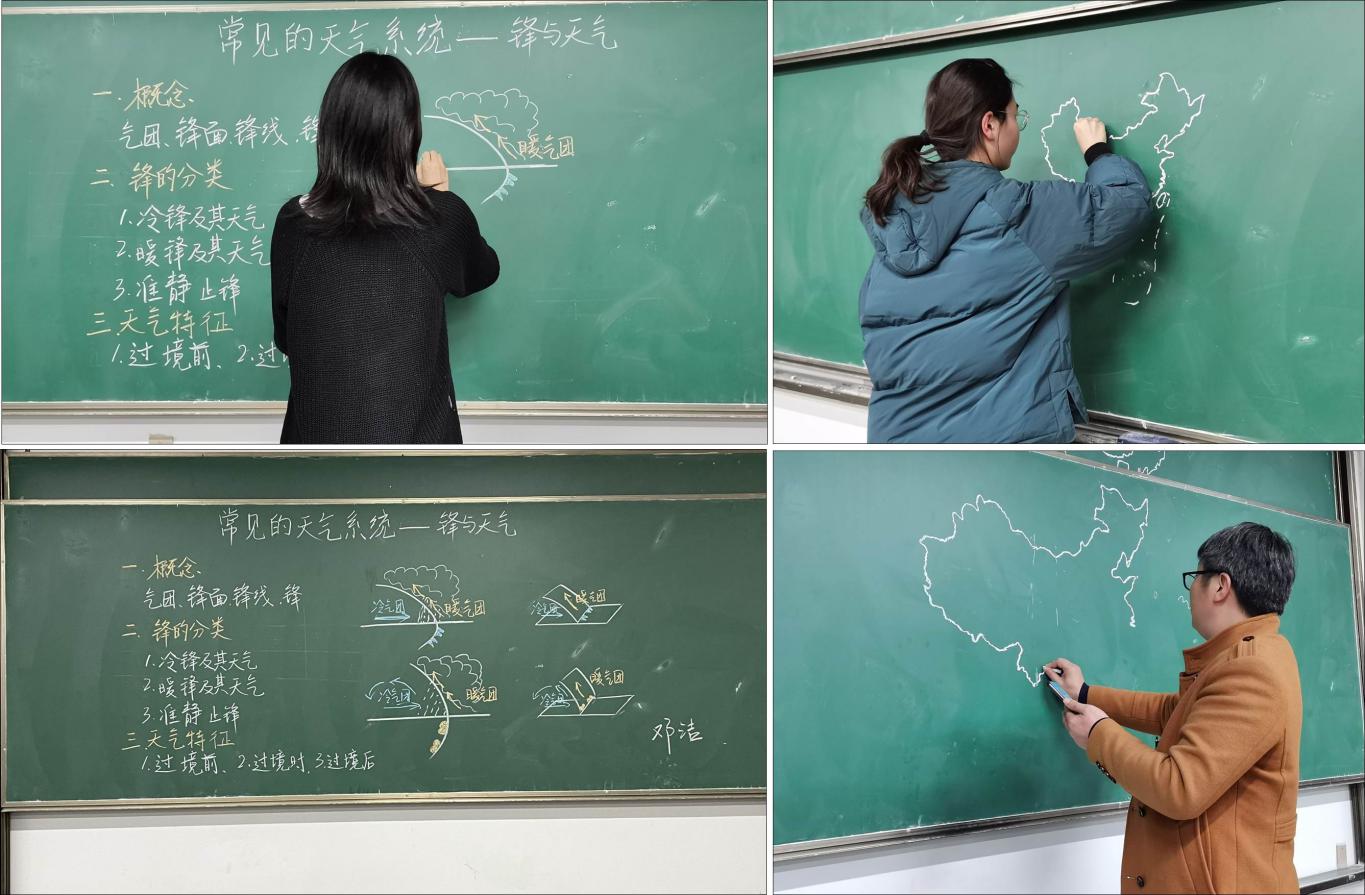 常见的天气系统——锋与天气
一.概念
气团、锋面.锋线.锋
二.锋的分类
1.冷锋及其天气
2.暖锋及其天气
3.准静止锋
三.天气特征
1.过境前、2.过
暖气团
常见的天气系统——锋与天气
一.概念
气团、锋面.锋线.锋
二.锋的分类
1.冷锋及其天气
2.暖锋及其天气
3.准静止锋
三.天气特征
1.过境前、2.过境时.3.过境后
冷气团 暖气团
冷气团 暖气团
冷气团 暖气团
冷气团 暖气团
邓洁